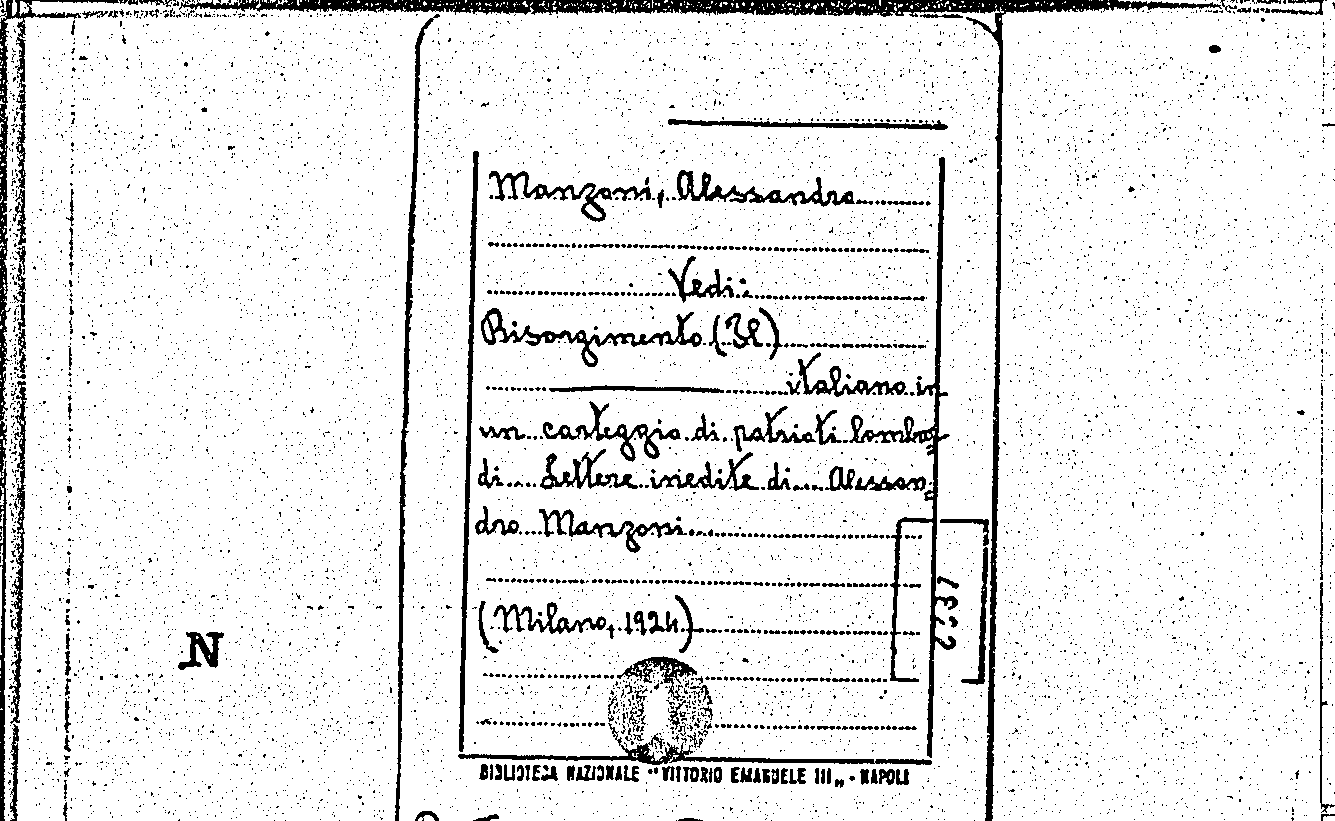 Manzoni, Alessandro
Vedi:
Risorgimento (Il)
italiano in
un carteggio di patrioti lombar=
di... Lettere inedite di... Alessan=
dro Manzoni...
(Milano, 1924)
N
BIBLIOTECA NAZIONALE "VITTORIO EMANUELE III„ - NAPOLI